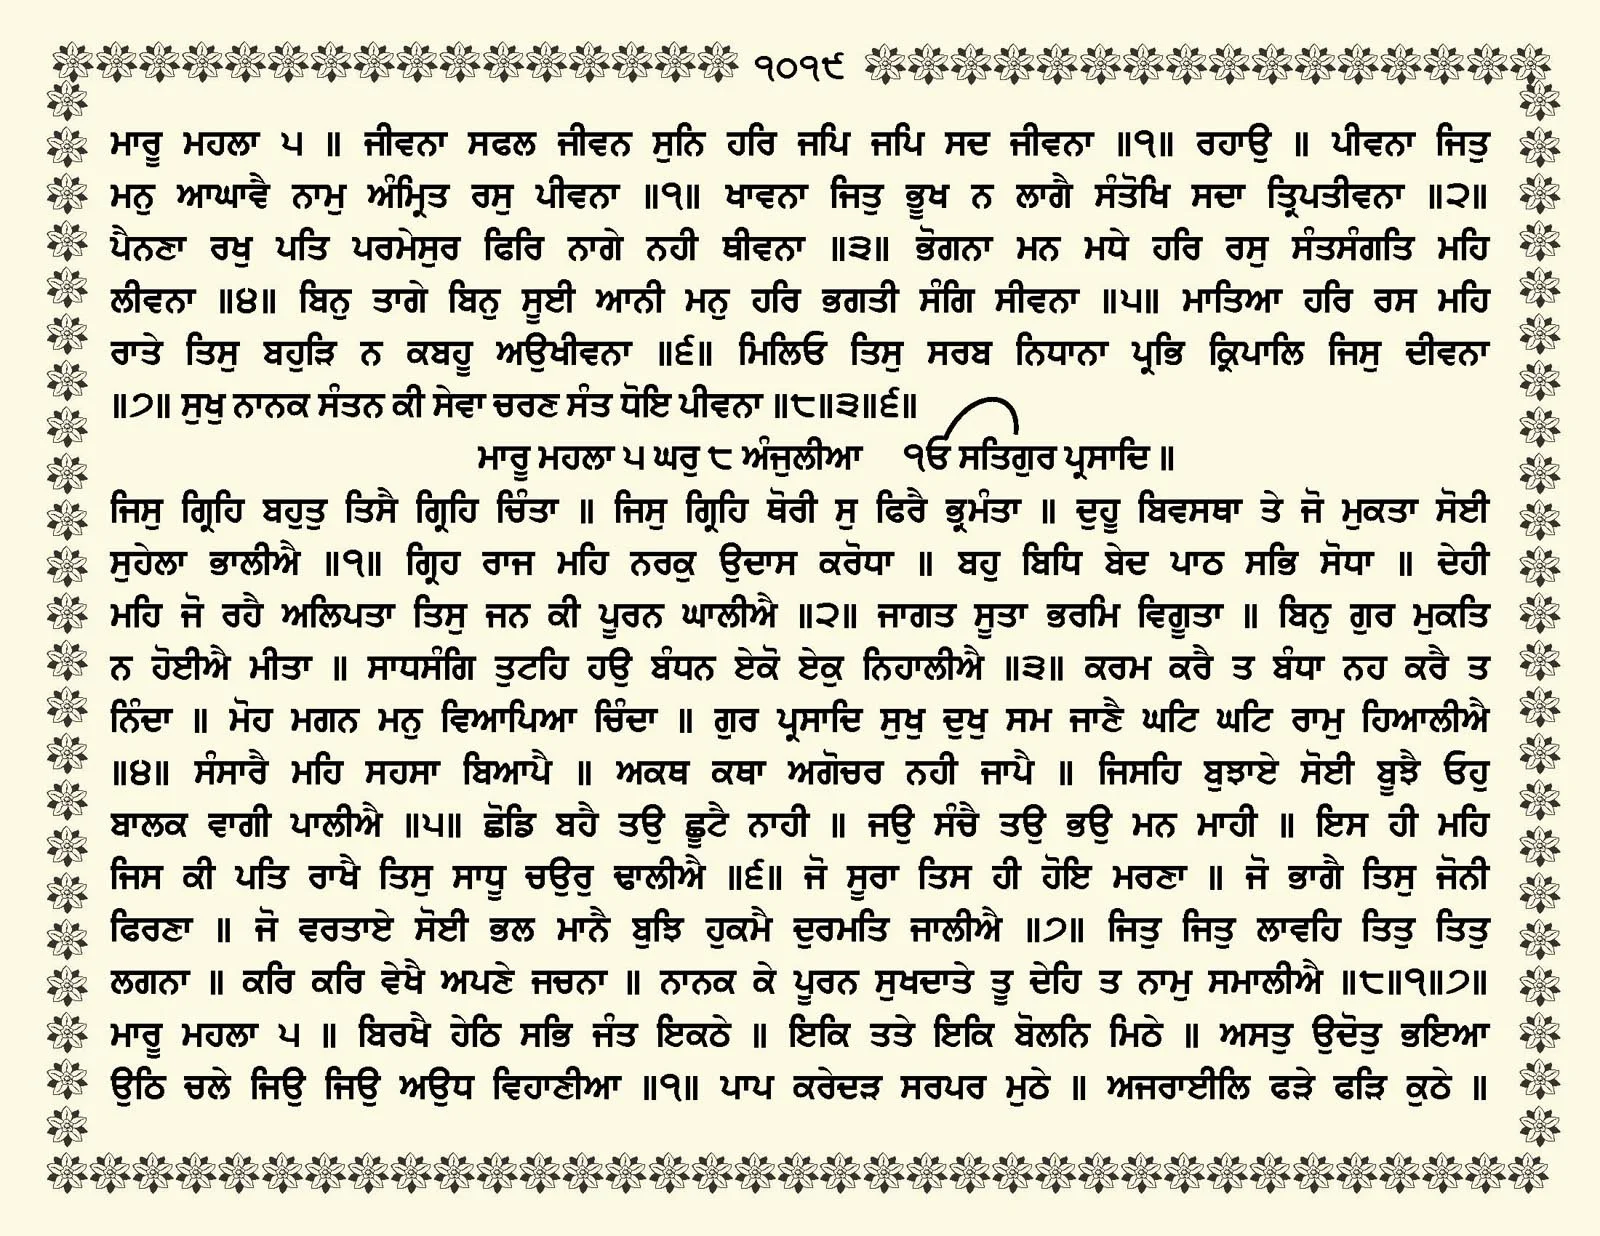 ੧੦੧੯
ਮਾਰੂ ਮਹਲਾ ੫ ॥ ਜੀਵਨਾ ਸਫਲ ਜੀਵਨ ਸੁਨਿ ਹਰਿ ਜਪਿ ਜਪਿ ਸਦ ਜੀਵਨਾ ॥੧॥ ਰਹਾਉ ॥ ਪੀਵਨਾ ਜਿਤੁ
ਮਨੁ ਆਘਾਵੈ ਨਾਮੁ ਅੰਮ੍ਰਿਤ ਰਸੁ ਪੀਵਨਾ ॥੧॥ ਖਾਵਨਾ ਜਿਤੁ ਭੂਖ ਨ ਲਾਗੈ ਸੰਤੋਖਿ ਸਦਾ ਤ੍ਰਿਪਤੀਵਨਾ ॥੨॥
ਪੈਨਣਾ ਰਖੁ ਪਤਿ ਪਰਮੇਸੁਰ ਫਿਰਿ ਨਾਗੇ ਨਹੀ ਥੀਵਨਾ ॥੩॥ ਭੋਗਨਾ ਮਨ ਮਧੇ ਹਰਿ ਰਸੁ ਸੰਤਸੰਗਤਿ ਮਹਿ
ਲੀਵਨਾ ॥੪॥ ਬਿਨੁ ਤਾਗੇ ਬਿਨੁ ਸੂਈ ਆਨੀ ਮਨੁ ਹਰਿ ਭਗਤੀ ਸੰਗਿ ਸੀਵਨਾ ॥੫॥ ਮਾਤਿਆ ਹਰਿ ਰਸ ਮਹਿ
ਰਾਤੇ ਤਿਸੁ ਬਹੁੜਿ ਨ ਕਬਹੂ ਅਉਖੀਵਨਾ ॥੬॥ ਮਿਲਿਓ ਤਿਸੁ ਸਰਬ ਨਿਧਾਨਾ ਪ੍ਰਭਿ ਕ੍ਰਿਪਾਲਿ ਜਿਸੁ ਦੀਵਨਾ
॥੭॥ ਸੁਖੁ ਨਾਨਕ ਸੰਤਨ ਕੀ ਸੇਵਾ ਚਰਣ ਸੰਤ ਧੋਇ ਪੀਵਨਾ ॥੮॥੩॥੬॥
ਮਾਰੂ ਮਹਲਾ ੫ ਘਰੁ ੮ ਅੰਜੁਲੀਆ ੴ ਸਤਿਗੁਰ ਪ੍ਰਸਾਦਿ ॥
ਜਿਸੁ ਗ੍ਰਿਹਿ ਬਹੁਤੁ ਤਿਸੈ ਗ੍ਰਿਹਿ ਚਿੰਤਾ ॥ ਜਿਸੁ ਗ੍ਰਿਹਿ ਥੋਰੀ ਸੁ ਫਿਰੈ ਭ੍ਰਮੰਤਾ ॥ ਦੁਹੂ ਬਿਵਸਥਾ ਤੇ ਜੋ ਮੁਕਤਾ ਸੋਈ
ਸੁਹੇਲਾ ਭਾਲੀਐ ॥੧॥ ਗ੍ਰਿਹ ਰਾਜ ਮਹਿ ਨਰਕੁ ਉਦਾਸ ਕਰੋਧਾ ॥ ਬਹੁ ਬਿਧਿ ਬੇਦ ਪਾਠ ਸਭਿ ਸੋਧਾ ॥ ਦੇਹੀ
ਮਹਿ ਜੋ ਰਹੈ ਅਲਿਪਤਾ ਤਿਸੁ ਜਨ ਕੀ ਪੂਰਨ ਘਾਲੀਐ ॥੨॥ ਜਾਗਤ ਸੂਤਾ ਭਰਮਿ ਵਿਗੂਤਾ ॥ ਬਿਨੁ ਗੁਰ ਮੁਕਤਿ
ਨ ਹੋਈਐ ਮੀਤਾ ॥ ਸਾਧਸੰਗਿ ਤੁਟਹਿ ਹਉ ਬੰਧਨ ਏਕੋ ਏਕੁ ਨਿਹਾਲੀਐ ॥੩॥ ਕਰਮ ਕਰੈ ਤ ਬੰਧਾ ਨਹ ਕਰੈ ਤ
ਨਿੰਦਾ ॥ ਮੋਹ ਮਗਨ ਮਨੁ ਵਿਆਪਿਆ ਚਿੰਦਾ ॥ ਗੁਰ ਪ੍ਰਸਾਦਿ ਸੁਖੁ ਦੁਖੁ ਸਮ ਜਾਣੈ ਘਟਿ ਘਟਿ ਰਾਮੁ ਹਿਆਲੀਐ
॥੪॥ ਸੰਸਾਰੈ ਮਹਿ ਸਹਸਾ ਬਿਆਪੈ ॥ ਅਕਥ ਕਥਾ ਅਗੋਚਰ ਨਹੀ ਜਾਪੈ ॥ ਜਿਸਹਿ ਬੁਝਾਏ ਸੋਈ ਬੂਝੈ ਓਹੁ
ਬਾਲਕ ਵਾਗੀ ਪਾਲੀਐ ॥੫॥ ਛੋਡਿ ਬਹੈ ਤਉ ਛੂਟੈ ਨਾਹੀ ॥ ਜਉ ਸੰਚੈ ਤਉ ਭਉ ਮਨ ਮਾਹੀ ॥ ਇਸ ਹੀ ਮਹਿ
ਜਿਸ ਕੀ ਪਤਿ ਰਾਖੈ ਤਿਸੁ ਸਾਧੂ ਚਉਰੁ ਢਾਲੀਐ ॥੬॥ ਜੋ ਸੂਰਾ ਤਿਸ ਹੀ ਹੋਇ ਮਰਣਾ ॥ ਜੋ ਭਾਗੈ ਤਿਸੁ ਜੋਨੀ
ਫਿਰਣਾ ॥ ਜੋ ਵਰਤਾਏ ਸੋਈ ਭਲ ਮਾਨੈ ਬੁਝਿ ਹੁਕਮੈ ਦੁਰਮਤਿ ਜਾਲੀਐ ॥੭॥ ਜਿਤੁ ਜਿਤੁ ਲਾਵਹਿ ਤਿਤੁ ਤਿਤੁ
ਲਗਨਾ ॥ ਕਰਿ ਕਰਿ ਵੇਖੈ ਅਪਣੇ ਜਚਨਾ ॥ ਨਾਨਕ ਕੇ ਪੂਰਨ ਸੁਖਦਾਤੇ ਤੂ ਦੇਹਿ ਤ ਨਾਮੁ ਸਮਾਲੀਐ ॥੮॥੧॥੭॥
ਮਾਰੂ ਮਹਲਾ ੫ ॥ ਬਿਰਖੈ ਹੇਠਿ ਸਭਿ ਜੰਤ ਇਕਠੇ ॥ ਇਕਿ ਤਤੇ ਇਕਿ ਬੋਲਨਿ ਮਿਠੇ ॥ ਅਸਤੁ ਉਦੋਤੁ ਭਇਆ
ਉਠਿ ਚਲੇ ਜਿਉ ਜਿਉ ਅਉਧ ਵਿਹਾਣੀਆ ॥੧॥ ਪਾਪ ਕਰੇਦੜ ਸਰਪਰ ਮੁਠੇ ॥ ਅਜਰਾਈਲਿ ਫੜੇ ਫੜਿ ਕੁਠੇ ॥